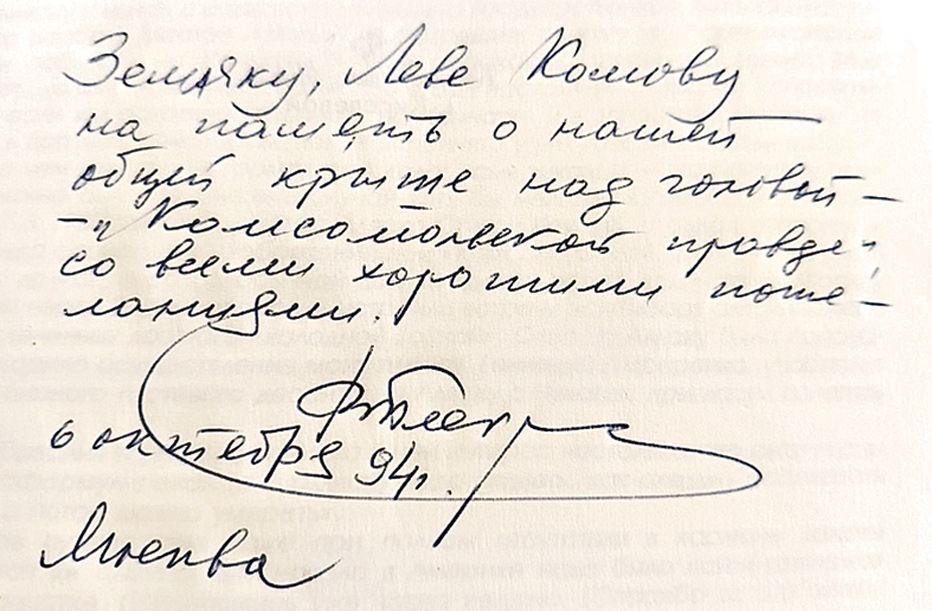 Земляку, Леве Комову
на память о нашей
общей крыше над головой –
– "Комсомольской правде",
со всеми хорошими поже-
ланиями.
6 октября 94г.
Москва